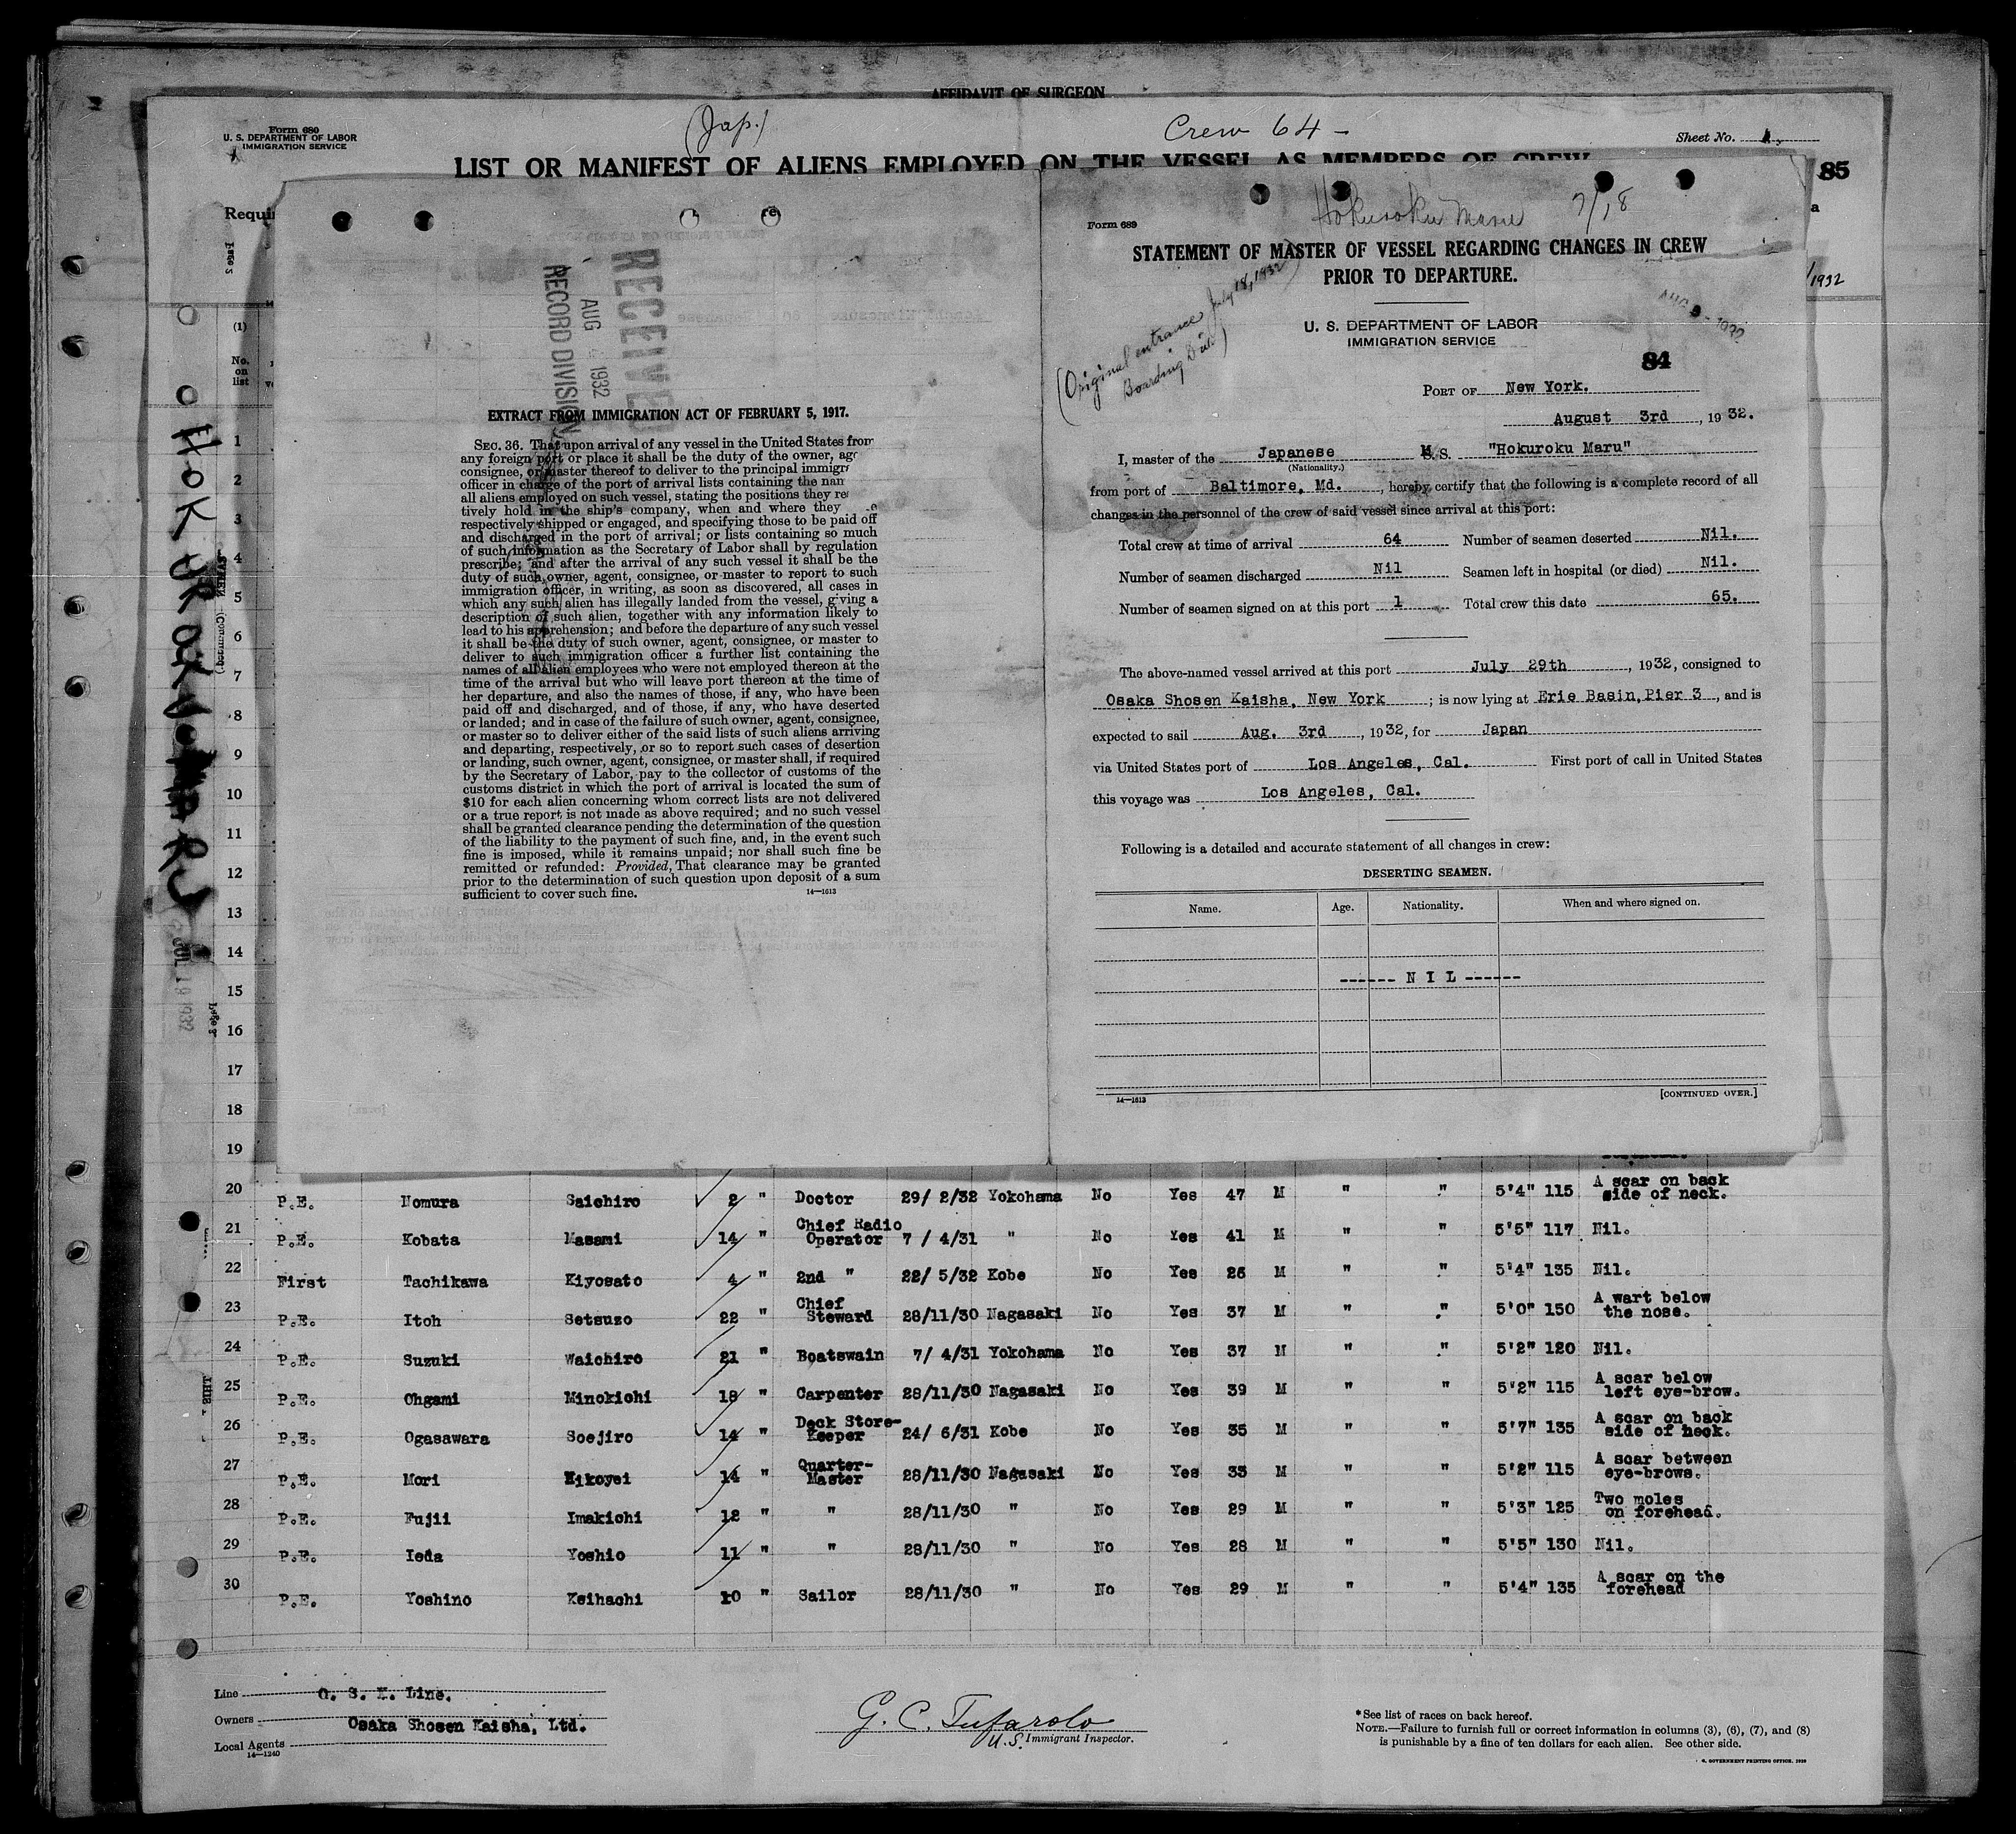 AFFIDAVIT OF SURGEON
Form 680
U. S. DEPARTMENT OF LABOR
IMMIGRATION SERVICE
(Jap.)
Crew 64 -
Sheet No. 1
LIST OR MANIFEST OF ALIENS EMPLOYED ON THE VESSEL AS MEMBERS OF CREW
85
1932
(1)
No. on list
HOKUROKU MARU
JUL 19 1932
RECEIVED
AUG 1932
RECORD DIVISION
EXTRACT FROM IMMIGRATION ACT OF FEBRUARY 5, 1917.
SEC. 36. That upon arrival of any vessel in the United States from
any foreign port or place it shall be the duty of the owner,
consignee, or master thereof to deliver to the principal
officer in charge of the port of arrival lists containing the
all aliens employed on such vessel, stating the positions they
tively hold in the ship's company, when and where they
respectively shipped or engaged, and specifying those to be paid off
and discharged in the port of arrival; or lists containing so much
of such information as the Secretary of Labor shall by regulation
prescribe; and after the arrival of any such vessel it shall be the
duty of such owner, agent, consignee, or master to report to such
immigration officer, in writing, as soon as discovered, all cases in
which any such alien has illegally landed from the vessel, giving a
description of such alien, together with any information likely to
lead to his apprehension; and before the departure of any such vessel
it shall be the duty of such owner, agent, consignee, or master to
deliver to such immigration officer a further list containing the
names of all alien employees who were not employed thereon at the
time of the arrival but who will leave port thereon at the time of
her departure, and also the names of those, if any, who have been
paid off and discharged, and of those, if any, who have deserted
or landed; and in case of the failure of such owner, agent, consignee,
or master so to deliver either of the said lists of such aliens arriving
and departing, respectively, or so to report such cases of desertion
or landing, such owner, agent, consignee, or master shall, if required
by the Secretary of Labor, pay to the collector of customs of the
customs district in which the port of arrival is located the sum of
$10 for each alien concerning whom correct lists are not delivered
or a true report is not made as above required; and no such vessel
shall be granted clearance pending the determination of the question
of the liability to the payment of such fine, and, in the event such
fine is imposed, while it remains unpaid; nor shall such fine be
remitted or refunded: Provided, That clearance may be granted
prior to the determination of such question upon deposit of a sum
sufficient to cover such fine.
14—1613
Form 689
Hokuroku Maru 7/18
STATEMENT OF MASTER OF VESSEL REGARDING CHANGES IN CREW
PRIOR TO DEPARTURE.
(Original entrance July 18, 1932
Boarding Div)
AUG 3 - 1932
U. S. DEPARTMENT OF LABOR
IMMIGRATION SERVICE
84
PORT OF New York.
August 3rd, 1932.
I, master of the Japanese M. S. "Hokuroku Maru"
(Nationality.)
from port of Baltimore, Md., hereby certify that the following is a complete record of all
changes in the personnel of the crew of said vessel since arrival at this port:
Total crew at time of arrival 64 Number of seamen deserted Nil.
Number of seamen discharged Nil Seamen left in hospital (or died) Nil.
Number of seamen signed on at this port 1 Total crew this date 65.
The above-named vessel arrived at this port July 29th, 1932, consigned to
Osaka Shosen Kaisha, New York; is now lying at Erie Basin, Pier 3, and is
expected to sail Aug. 3rd, 1932, for Japan
via United States port of Los Angeles, Cal. First port of call in United States
this voyage was Los Angeles, Cal.
Following is a detailed and accurate statement of all changes in crew:
DESERTING SEAMEN.
Name. Age. Nationality. When and where signed on.
------ N I L ------
14—1613
[CONTINUED OVER.]
1
2
3
4
5
6
7
8
9
10
11
12
13
14
15
16
17
18
19
20 P.E. Nomura Saichiro 2 " Doctor 29/ 2/32 Yokohama No Yes 47 M " " 5'4" 115 A scar on back side of neck.
21 P.E. Kobata Masami 14 " Chief Radio Operator 7 / 4/31 " No Yes 41 M " " 5'5" 117 Nil.
22 First Tachikawa Kiyosato 4 " 2nd " 22/ 5/32 Kobe No Yes 26 M " " 5'4" 135 Nil.
23 P.E. Itoh Setsuzo 22 " Chief Steward 28/11/30 Nagasaki No Yes 37 M " " 5'0" 150 A wart below the nose.
24 P.E. Suzuki Waichiro 21 " Boatswain 7/ 4/31 Yokohama No Yes 37 M " " 5'2" 120 Nil.
25 P.E. Ohgami Minokichi 18 " Carpenter 28/11/30 Nagasaki No Yes 39 M " " 5'2" 115 A scar below left eye-brow.
26 P.E. Ogasawara Soejiro 14 " Deck Store-Keeper 24/ 6/31 Kobe No Yes 35 M " " 5'7" 135 A scar on back side of neck.
27 P.E. Mori Kikoyei 14 " Quarter-Master 28/11/30 Nagasaki No Yes 33 M " " 5'2" 115 A scar between eye-brows.
28 P.E. Fujii Imakichi 12 " " 28/11/30 " No Yes 29 M " " 5'3" 125 Two moles on forehead.
29 P.E. Ieda Yoshio 11 " " 28/11/30 " No Yes 28 M " " 5'5" 130 Nil.
30 P.E. Yoshino Keihachi 10 " Sailor 28/11/30 " No Yes 29 M " " 5'4" 135 A scar on the forehead
Line O. S. K. Line.
Owners Osaka Shosen Kaisha, Ltd.
Local Agents
14—1240
G. C. Tufarolo
U.S. Immigrant Inspector.
* See list of races on back hereof.
NOTE.—Failure to furnish full or correct information in columns (3), (6), (7), and (8)
is punishable by a fine of ten dollars for each alien. See other side.